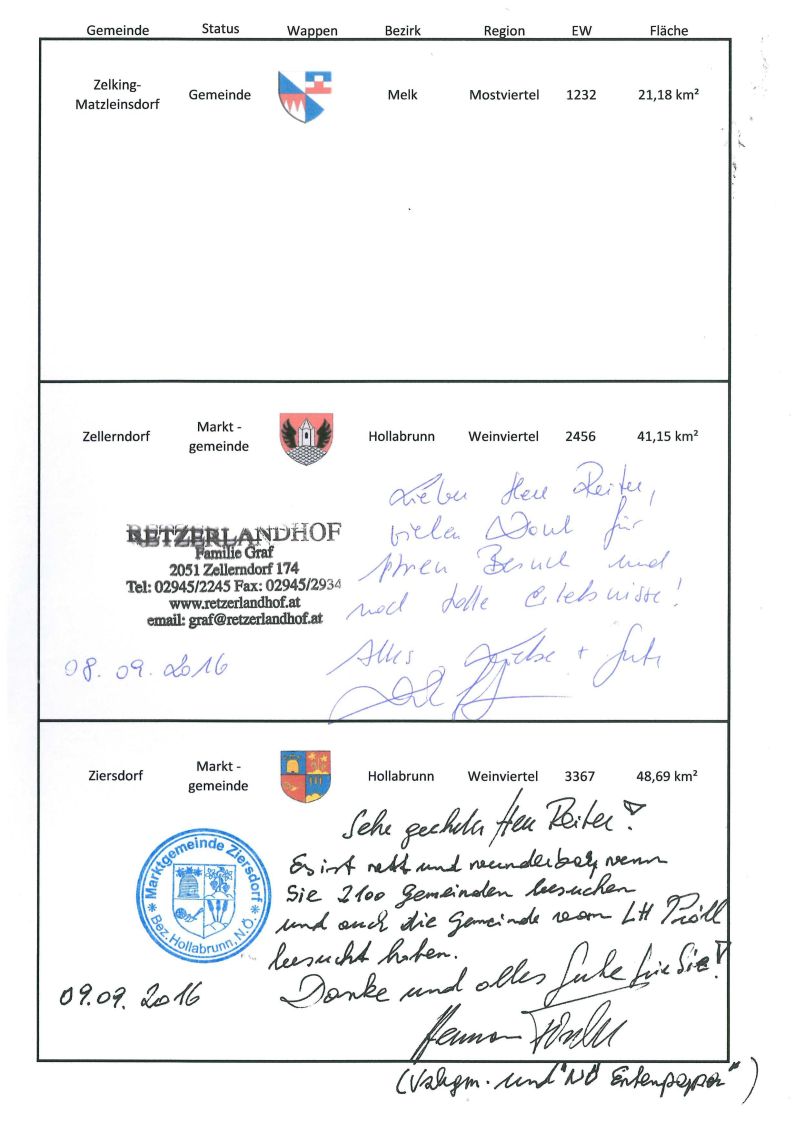 Gemeinde Status Wappen Bezirk Region EW Fläche
Zelking-
Matzleinsdorf Gemeinde Melk Mostviertel 1232 21,18 km²
Zellerndorf Markt - gemeinde Hollabrunn Weinviertel 2456 41,15 km²
RETZERLANDHOF
Familie Graf
2051 Zellerndorf 174
Tel: 02945/2245 Fax: 02945/2934
www.retzerlandhof.at
email: graf@retzerlandhof.at
Lieber Herr Reiter,
vielen Dank für
Ihren Besuch und
noch tolle Erlebnisse!
Alles Liebe + Gute
08. 09. 2016
Ziersdorf Markt - gemeinde Hollabrunn Weinviertel 3367 48,69 km²
* Marktgemeinde Ziersdorf *
Bez. Hollabrunn, N.Ö.
Sehr geehrter Herr Reiter!
Es ist nett und wunderbar, wenn
Sie 2100 Gemeinden besuchen
und auch die Gemeinde vom LH Pröll
besucht haben.
Danke und alles Gute für Sie!
09.09. 2016
Hermann
und "NÖ